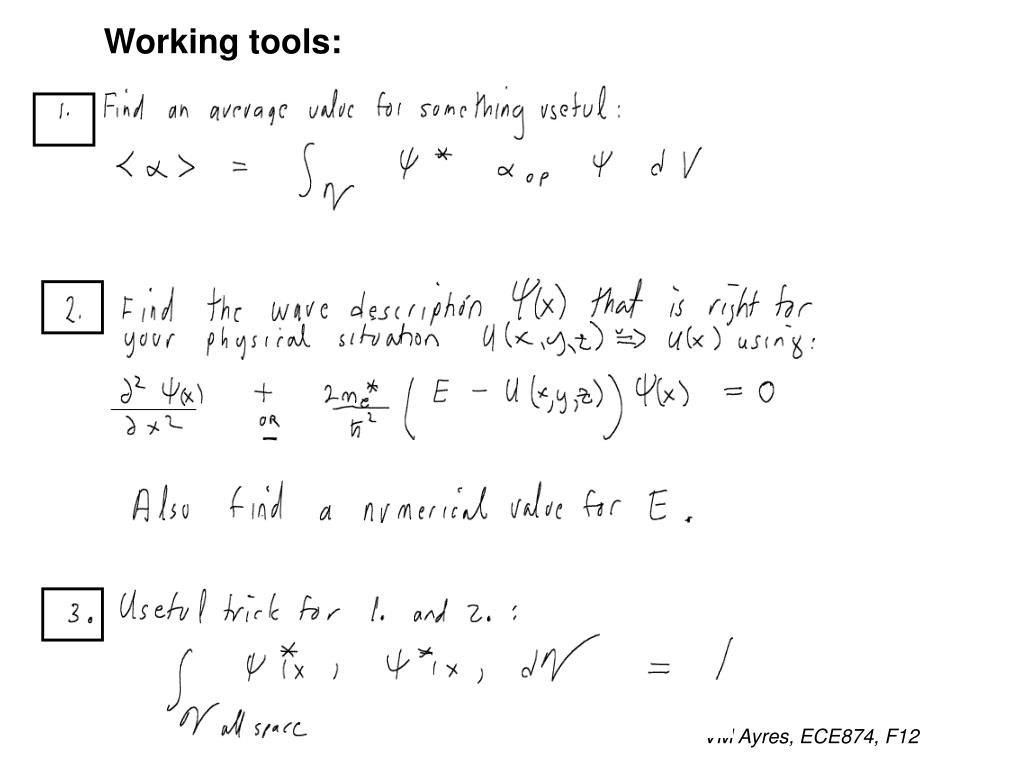 Working tools:
1. Find an average value for something useful:
<α> = ∫_V Ψ* α_op Ψ dV
2. Find the wave description Ψ(x) that is right for
your physical situation U(x,y,z) ⇒ U(x) using:
∂²Ψ(x)/∂x² + 2m_e*/ħ² (E − U(x,y,z)) Ψ(x) = 0
OR
Also find a numerical value for E.
3. Useful trick for 1. and 2. :
∫ Ψ*(x) Ψ*(x) dV = 1
V all space
Ayres, ECE874, F12